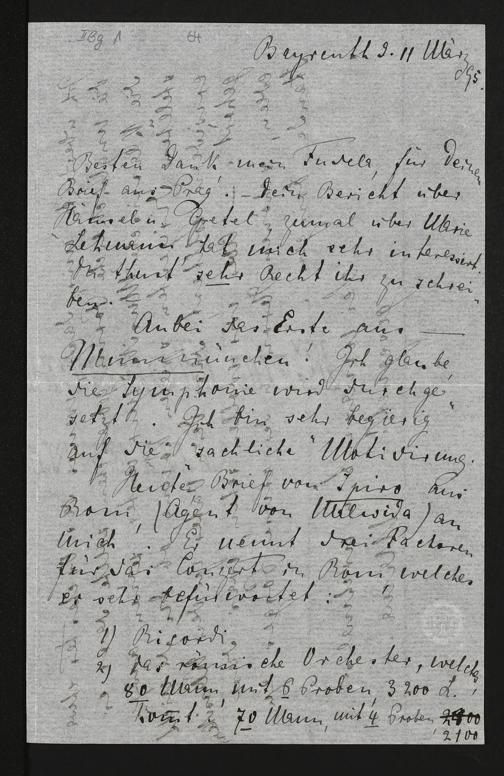 IBg A 64
Bayreuth d. 11 März
95.
Besten Dank mein Fudela, für Deinen
Brief aus Prag! – Dein Bericht über
Hänsel u. Gretel, zumal über Marie
Lehmann hat mich sehr interessirt.
Du thust sehr Recht ihr zu schrei-
ben.
Anbei das Erste aus —
München! Ich glaube,
die Symphonie wird „durchge-
setzt“. Ich bin sehr begierig
auf die „sachliche“ Motivirung.
Heute Brief von Spiro aus
Rom, (Agent von Malwida) an
mich. Er nennt drei Factoren
für das Concert in Rom, welches
er sehr befürwortet:
1) Ricordi.
2) das römische Orchester, welches
80 Mann, mit 6 Proben, 3200 L.
kommt. 70 Mann, mit 4 Proben
2100